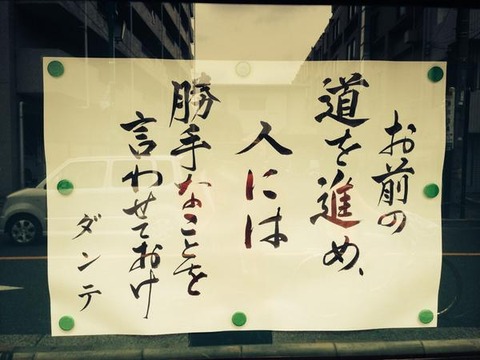 お前の
道を進め、
人には
勝手なことを
言わせておけ
ダンテ